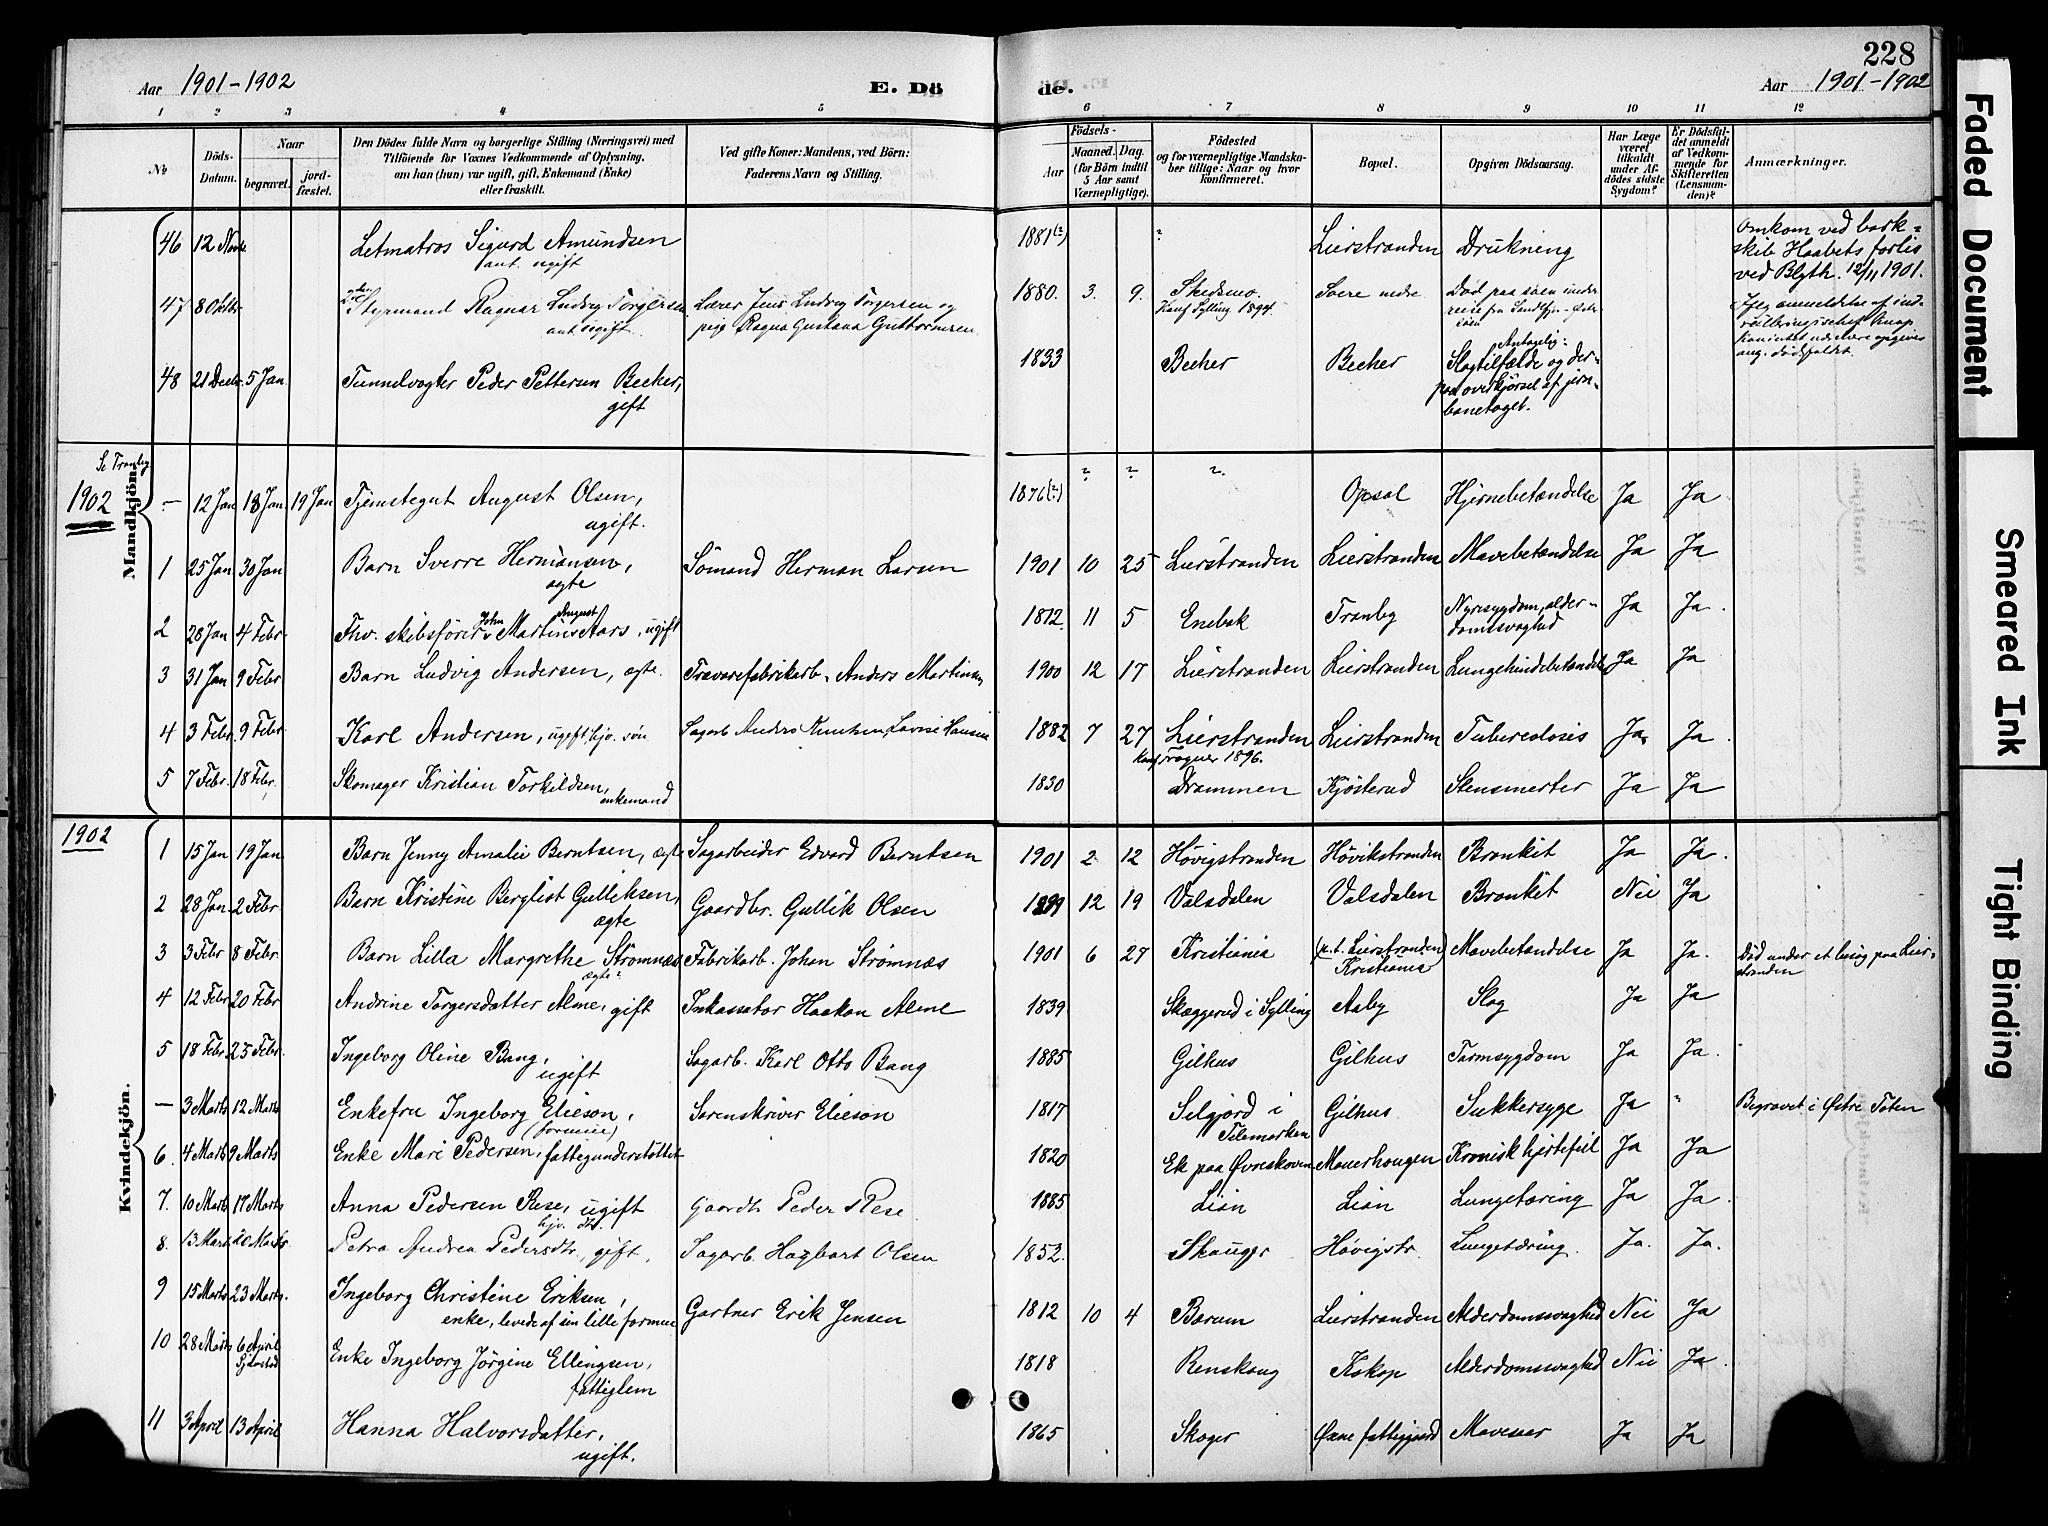 228
Aar 1901-1902
E. Dö
de.
Aar 1901-1902
1 2 3 4 5 6 7 8 9 10 11 12
No
Döds-
Datum.
Naar
begravet.
jord-
fæstet.
Den Dödes fulde Navn og borgerlige Stilling (Næringsvei) med
Tilföiende for Voxnes Vedkommende af Oplysning,
om han (hun) var ugift, gift, Enkemand (Enke)
eller fraskilt.
Ved gifte Koner: Mandens, ved Börn:
Faderens Navn og Stilling.
Födsels-
Aar
Maaned. Dag.
(for Börn indtil
5 Aar samt
Værnepligtige).
Födested
og for værnepligtige Mandska-
ber tillige: Naar og hvor
konfirmeret.
Bopæl.
Opgiven Dödsaarsag.
Har Læge
været
tilkaldt
under Af-
dödes sidste
Sygdom?
Er Dödsfal-
det anmeldt
af Vedkom-
mende for
Skifteretten
(Lensman-
den)?
Anmærkninger.
46 12 Novbr Letmatros Sigurd Amundsen 1881(?) ? Lierstranden Drukning
ant. ugift
Omkom ved bark-
skib Haabets forlis
ved Blyth. 12/11 1901.
47 8 Oktbr 2den Styrmand Ragnar Ludvig Torgersen Lærer Jens Ludvig Torgersen og 1880. 3. 9. Skedsmo. Soere nedre Död paa söen under
ant. ugift. pige Ragna Gustava Guttormsen Konf Sylling 1894. reise fra Sandefj.-Öster-
söen
Ifølg anmeldelse af ind-
rulleringschef Knap
Kan intet nærmere opgives
ang. dödsfaldet.
48 21 Decbr. 5 Jan Tunnelvogter Peder Pettersen Becher, 1833 Becher Becher Antagelig:
gift Slagtilfælde og der-
paa overkjörsel af jern-
banetoget.
Se Tranby
1902
Mandkjön.
- 12 Jan 18 Jan 19 Jan Tjenstegut August Olsen, 1876(?) ? ? ? Opsal Hjernebetændelse Ja Ja
ugift.
1 25 Jan 30 Jan Barn Sverre Hermansen, Sömand Herman Larsen 1901 10 25 Lierstranden Lierstranden Mavebetændelse Ja Ja
ægte
2 28 Jan 4 Febr Fhv. skibsfører John Martinus August Aars, ugift 1812. 11 5 Enebak Tranby Nyresygdom, alder-
domssvaghed Ja Ja.
3 31 Jan 9 Febr Barn Ludvig Andersen, ægte. Trævarefabrikarb. Anders Martinsen 1900 12 17 Lierstranden Lierstranden Lungehindebetændelse Ja Ja
4 3 Febr. 9 Febr Karl Andersen, ugift, hjv. sön Sagarb Anders Knutsen, Lovise Hansen 1882 7 27 Lierstranden Lierstranden Tuberculosis Ja Ja
Konf Tragner 1896.
5 7 Febr. 18 Febr. Skomager Kristian Torkildsen, 1830 Drammen Kjösterud Stensmerter Ja Ja
enkemand
1902
Kvindekjön.
1 15 Jan 19 Jan Barn Jenny Amalie Berntsen, ægte Sagarbeider Edvard Berntsen 1901 2 12 Hövigstranden Hövikstranden Bronkit Ja Ja.
2 28 Jan 2 Febr Barn Kristine Berglist Gulliksen, Gaardbr. Gullik Olsen 1899 12 19 Valsdalen Valsdalen Bronkit Nei Ja
ægte
3 3 Febr 8 Febr. Barn Lilla Margrethe Strømnæs Fabrikarb. Johan Strømnæs 1901 6 27 Kristiania (p.t. Lierstranden) Mavebetændelse Ja Ja. Död under et besög paa Lier-
ægte Kristiania stranden
4 12 Febr 20 Febr Andrine Torgersdatter Alme, gift Inkassator Haakon Alme 1839 Skæggerud i Sylling Aaby Slag Ja Ja
5 18 Febr. 25 Febr. Ingeborg Oline Bang, Sagarb. Karl Otto Bang 1885 Gilhus Gilhus Tarmsygdom Ja Ja.
ugift
- 3 Marts 12 Marts Enkefru Ingeborg Elieson, Sorenskriver Elieson 1817 Selgjord i Gilhus Sukkersyge Ja " Begravet i Østre Toten
(formue) Telemarken
6. 4 Marts 9 Marts Enke Mari Pedersen, fattigunderstöttet 1820 Ek paa Øvreskoven Mauerhougen Kronisk hjertefeil Ja Ja
7. 10 Marts 17 Marts Anna Pedersen Rese, ugift Gaardbr Peder Rese 1885 Liön Liön Lungetæring Ja Ja.
hjv. dtr.
8. 13 Marts 20 Marts Petra Andrea Pedersdtr., gift, Sagarb. Hagbart Olsen 1852. Skauger Hövigstr. Lungetæring. Ja. Ja.
9 15 Marts 23 Marts. Ingeborg Christine Eriksen, Gartner Erik Jensen 1812 10 4 Bærum Lierstranden Alderdomssvaghed Nei Ja
enke, levede af sin lille formue
10 28 Marts 6 April Enke Ingeborg Jörgine Ellingsen, 1818 Renskoug Koksop Alderdomssvaghed Nei Ja.
fattiglem
11 3 April 13 April Hanna Halvorsdatter, 1865 Skoger Øxne fattiggaard Mavesaar Ja Ja
ugift.
Faded Document
Smeared Ink
Tight Binding